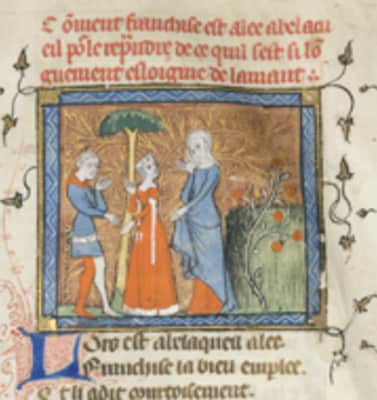 C õment franchise est alee a bel acu
eil põ le reprendre de ce quil sest si lõ
guement esloigne de lamant
Lors est a bel aqueil alee
Franchise la bien emplee.
Et li a dit courtoisement.